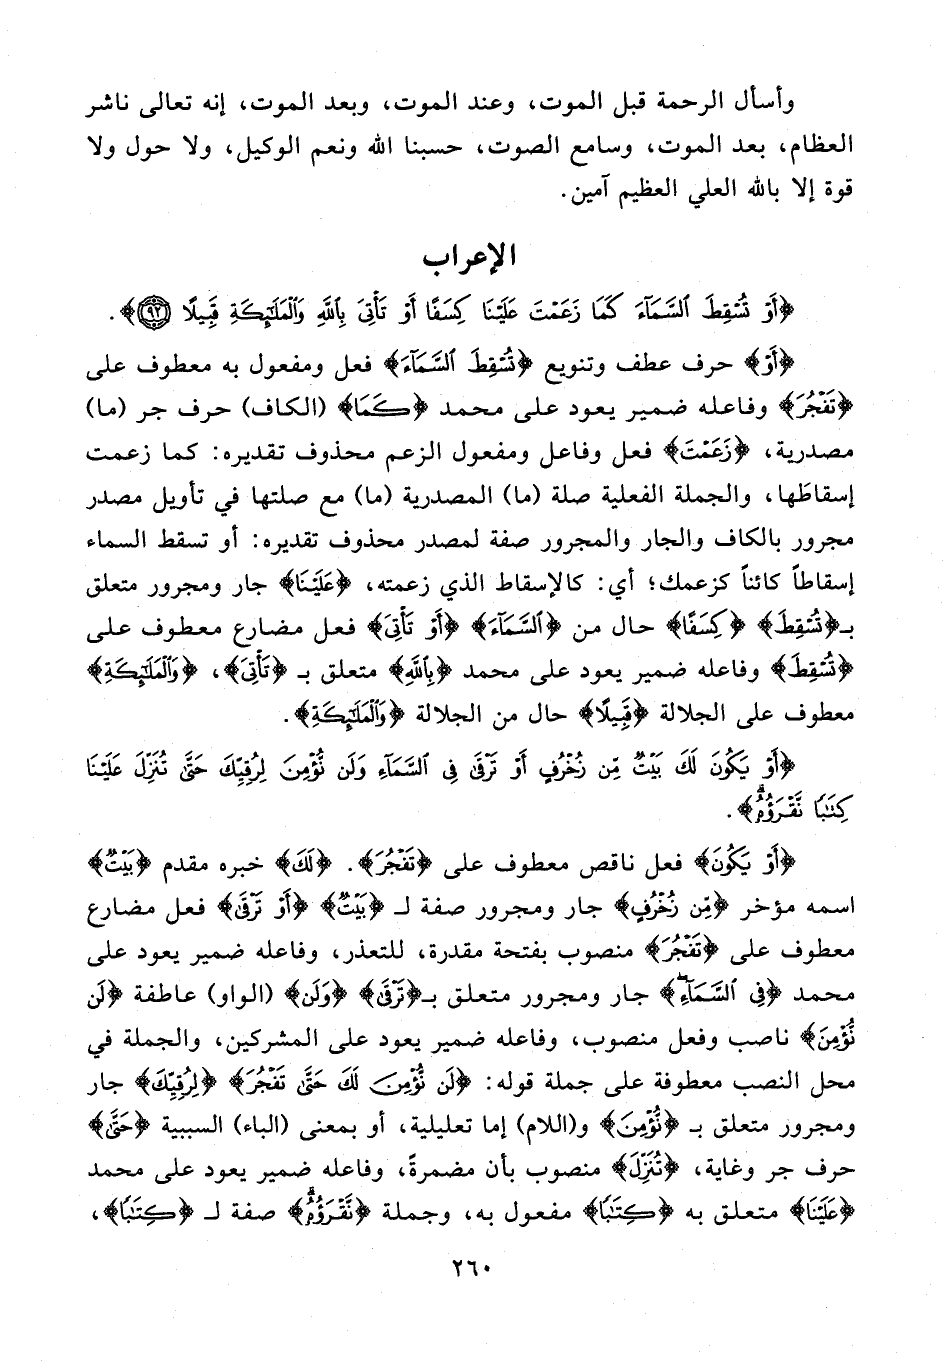 وأسأل الرحمة قبل الموت، وعند الموت، وبعد الموت، إنه تعالى ناشر
العظام، بعد الموت، وسامع الصوت، حسبنا الله ونعم الوكيل، ولا حول ولا
قوة إلا بالله العلي العظيم آمين.
الإعراب
﴿أَوْ تُسْقِطَ ٱلسَّمَآءَ كَمَا زَعَمْتَ عَلَيْنَا كِسَفًا أَوْ تَأْتِىَ بِٱللَّهِ وَٱلْمَلَٰٓئِكَةِ قَبِيلًا ٩٢﴾.
﴿أَوْ﴾ حرف عطف وتنويع ﴿تُسْقِطَ ٱلسَّمَآءَ﴾ فعل ومفعول به معطوف على
﴿تَفْجُرَ﴾ وفاعله ضمير يعود على محمد ﴿كَمَا﴾ (الكاف) حرف جر (ما)
مصدرية، ﴿زَعَمْتَ﴾ فعل وفاعل ومفعول الزعم محذوف تقديره: كما زعمت
إسقاطَها، والجملة الفعلية صلة (ما) المصدرية (ما) مع صلتها في تأويل مصدر
مجرور بالكاف والجار والمجرور صفة لمصدر محذوف تقديره: أو تسقط السماء
إسقاطاً كائناً كزعمك؛ أي: كالإسقاط الذي زعمته، ﴿عَلَيْنَا﴾ جار ومجرور متعلق
بـ﴿تُسْقِطَ﴾ ﴿كِسَفًا﴾ حال من ﴿ٱلسَّمَآءَ﴾ ﴿أَوْ تَأْتِىَ﴾ فعل مضارع معطوف على
﴿تُسْقِطَ﴾ وفاعله ضمير يعود على محمد ﴿بِٱللَّهِ﴾ متعلق بـ ﴿تَأْتِىَ﴾، ﴿وَٱلْمَلَٰٓئِكَةِ﴾
معطوف على الجلالة ﴿قَبِيلًا﴾ حال من الجلالة ﴿وَٱلْمَلَٰٓئِكَةِ﴾.
﴿أَوْ يَكُونَ لَكَ بَيْتٌ مِّن زُخْرُفٍ أَوْ تَرْقَىٰ فِى ٱلسَّمَآءِ وَلَن نُّؤْمِنَ لِرُقِيِّكَ حَتَّىٰ تُنَزِّلَ عَلَيْنَا
كِتَٰبًا نَّقْرَؤُهُۥ﴾.
﴿أَوْ يَكُونَ﴾ فعل ناقص معطوف على ﴿تَفْجُرَ﴾. ﴿لَكَ﴾ خبره مقدم ﴿بَيْتٌ﴾
اسمه مؤخر ﴿مِّن زُخْرُفٍ﴾ جار ومجرور صفة لـ ﴿بَيْتٌ﴾ ﴿أَوْ تَرْقَىٰ﴾ فعل مضارع
معطوف على ﴿تَفْجُرَ﴾ منصوب بفتحة مقدرة، للتعذر، وفاعله ضمير يعود على
محمد ﴿فِى ٱلسَّمَآءِ﴾ جار ومجرور متعلق بـ﴿تَرْقَىٰ﴾ ﴿وَلَن﴾ (الواو) عاطفة ﴿لَن
نُّؤْمِنَ﴾ ناصب وفعل منصوب، وفاعله ضمير يعود على المشركين، والجملة في
محل النصب معطوفة على جملة قوله: ﴿لَن نُّؤْمِنَ لَكَ حَتَّىٰ تَفْجُرَ﴾ ﴿لِرُقِيِّكَ﴾ جار
ومجرور متعلق بـ ﴿نُّؤْمِنَ﴾ و(اللام) إما تعليلية، أو بمعنى (الباء) السببية ﴿حَتَّىٰ﴾
حرف جر وغاية، ﴿تُنَزِّلَ﴾ منصوب بأن مضمرةً، وفاعله ضمير يعود على محمد
﴿عَلَيْنَا﴾ متعلق به ﴿كِتَٰبًا﴾ مفعول به، وجملة ﴿نَّقْرَؤُهُۥ﴾ صفة لـ ﴿كِتَٰبًا﴾،
٢٦٠